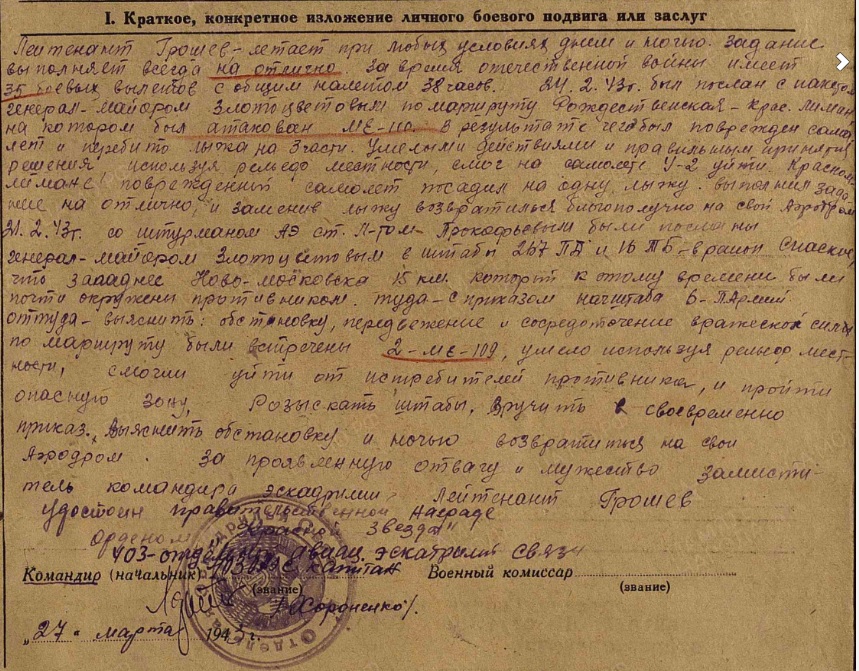 I. Краткое, конкретное изложение личного боевого подвига или заслуг
Лейтенант Грошев – летает при любых условиях днем и ночью. Задание
выполняет всегда на отлично. За время отечественной войны имеет
35 боевых вылетов с общим налетом 38 часов. 24.2.43г. был послан с
генерал-майором Злотоцветовым по маршруту Рождественская – Крас. Лиман
на котором был атакован МЕ-110. В результате чего был поврежден само
лет и перебита лыжа на 3 части. Умелыми действиями и правильным
решения используя рельеф местности, смог на самолете У-2 уйти.
лимане, поврежденный самолет посадил на одну лыжу. Выполнил зада-
ние на отлично, и заменив лыжу возвратился благополучно на свой Аэродром
21.2.43г. со штурманом АЭ ст. Л-том – Прокофьевым были посланы
генерал-майором Злотоцветовым в штабы 267 ПД и 16 ТБ – в район
что Ново-московска 15 км. которые к этому времени были
почти окружены противником. Туда – с приказом начштаба 6-
оттуда – выяснить: обстановку, передвежение и сосредоточение вражеской силы
по маршруту были встречены 2-МЕ-109, умело используя рельеф мест-
ности, смогли уйти от истребителей противника, и пройти
опасную зону, Розыскать штабы, вручить своевременно
приказ. Выяснить обстановку и ночью возвратиться на свой
Аэродром. За проявленную отвагу и мужество
тель командира эскадрилии Лейтенант Грошев
удостоен правительственной награде
орденом Звезда"
403-отдельн. авиац. эскатрилии связи
Командир (начальник) капитан Военный комиссар
(звание) (звание)
/Хороненко/.
„27" марта 1943г.